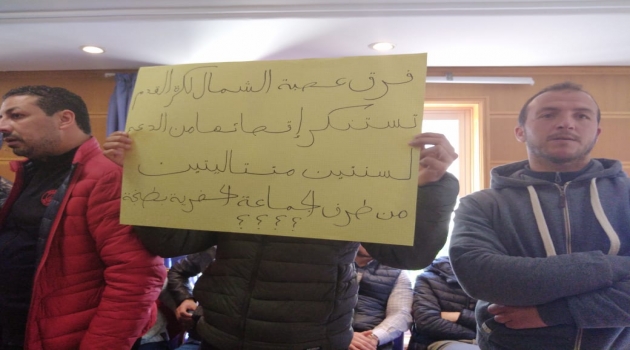 فرق عصبة الشمال لكرة القدم
تستنكر إقصائها من الدعم
لسنتين متتاليتين
من طرف الجماعة الحضرية بطنجة
؟؟؟؟